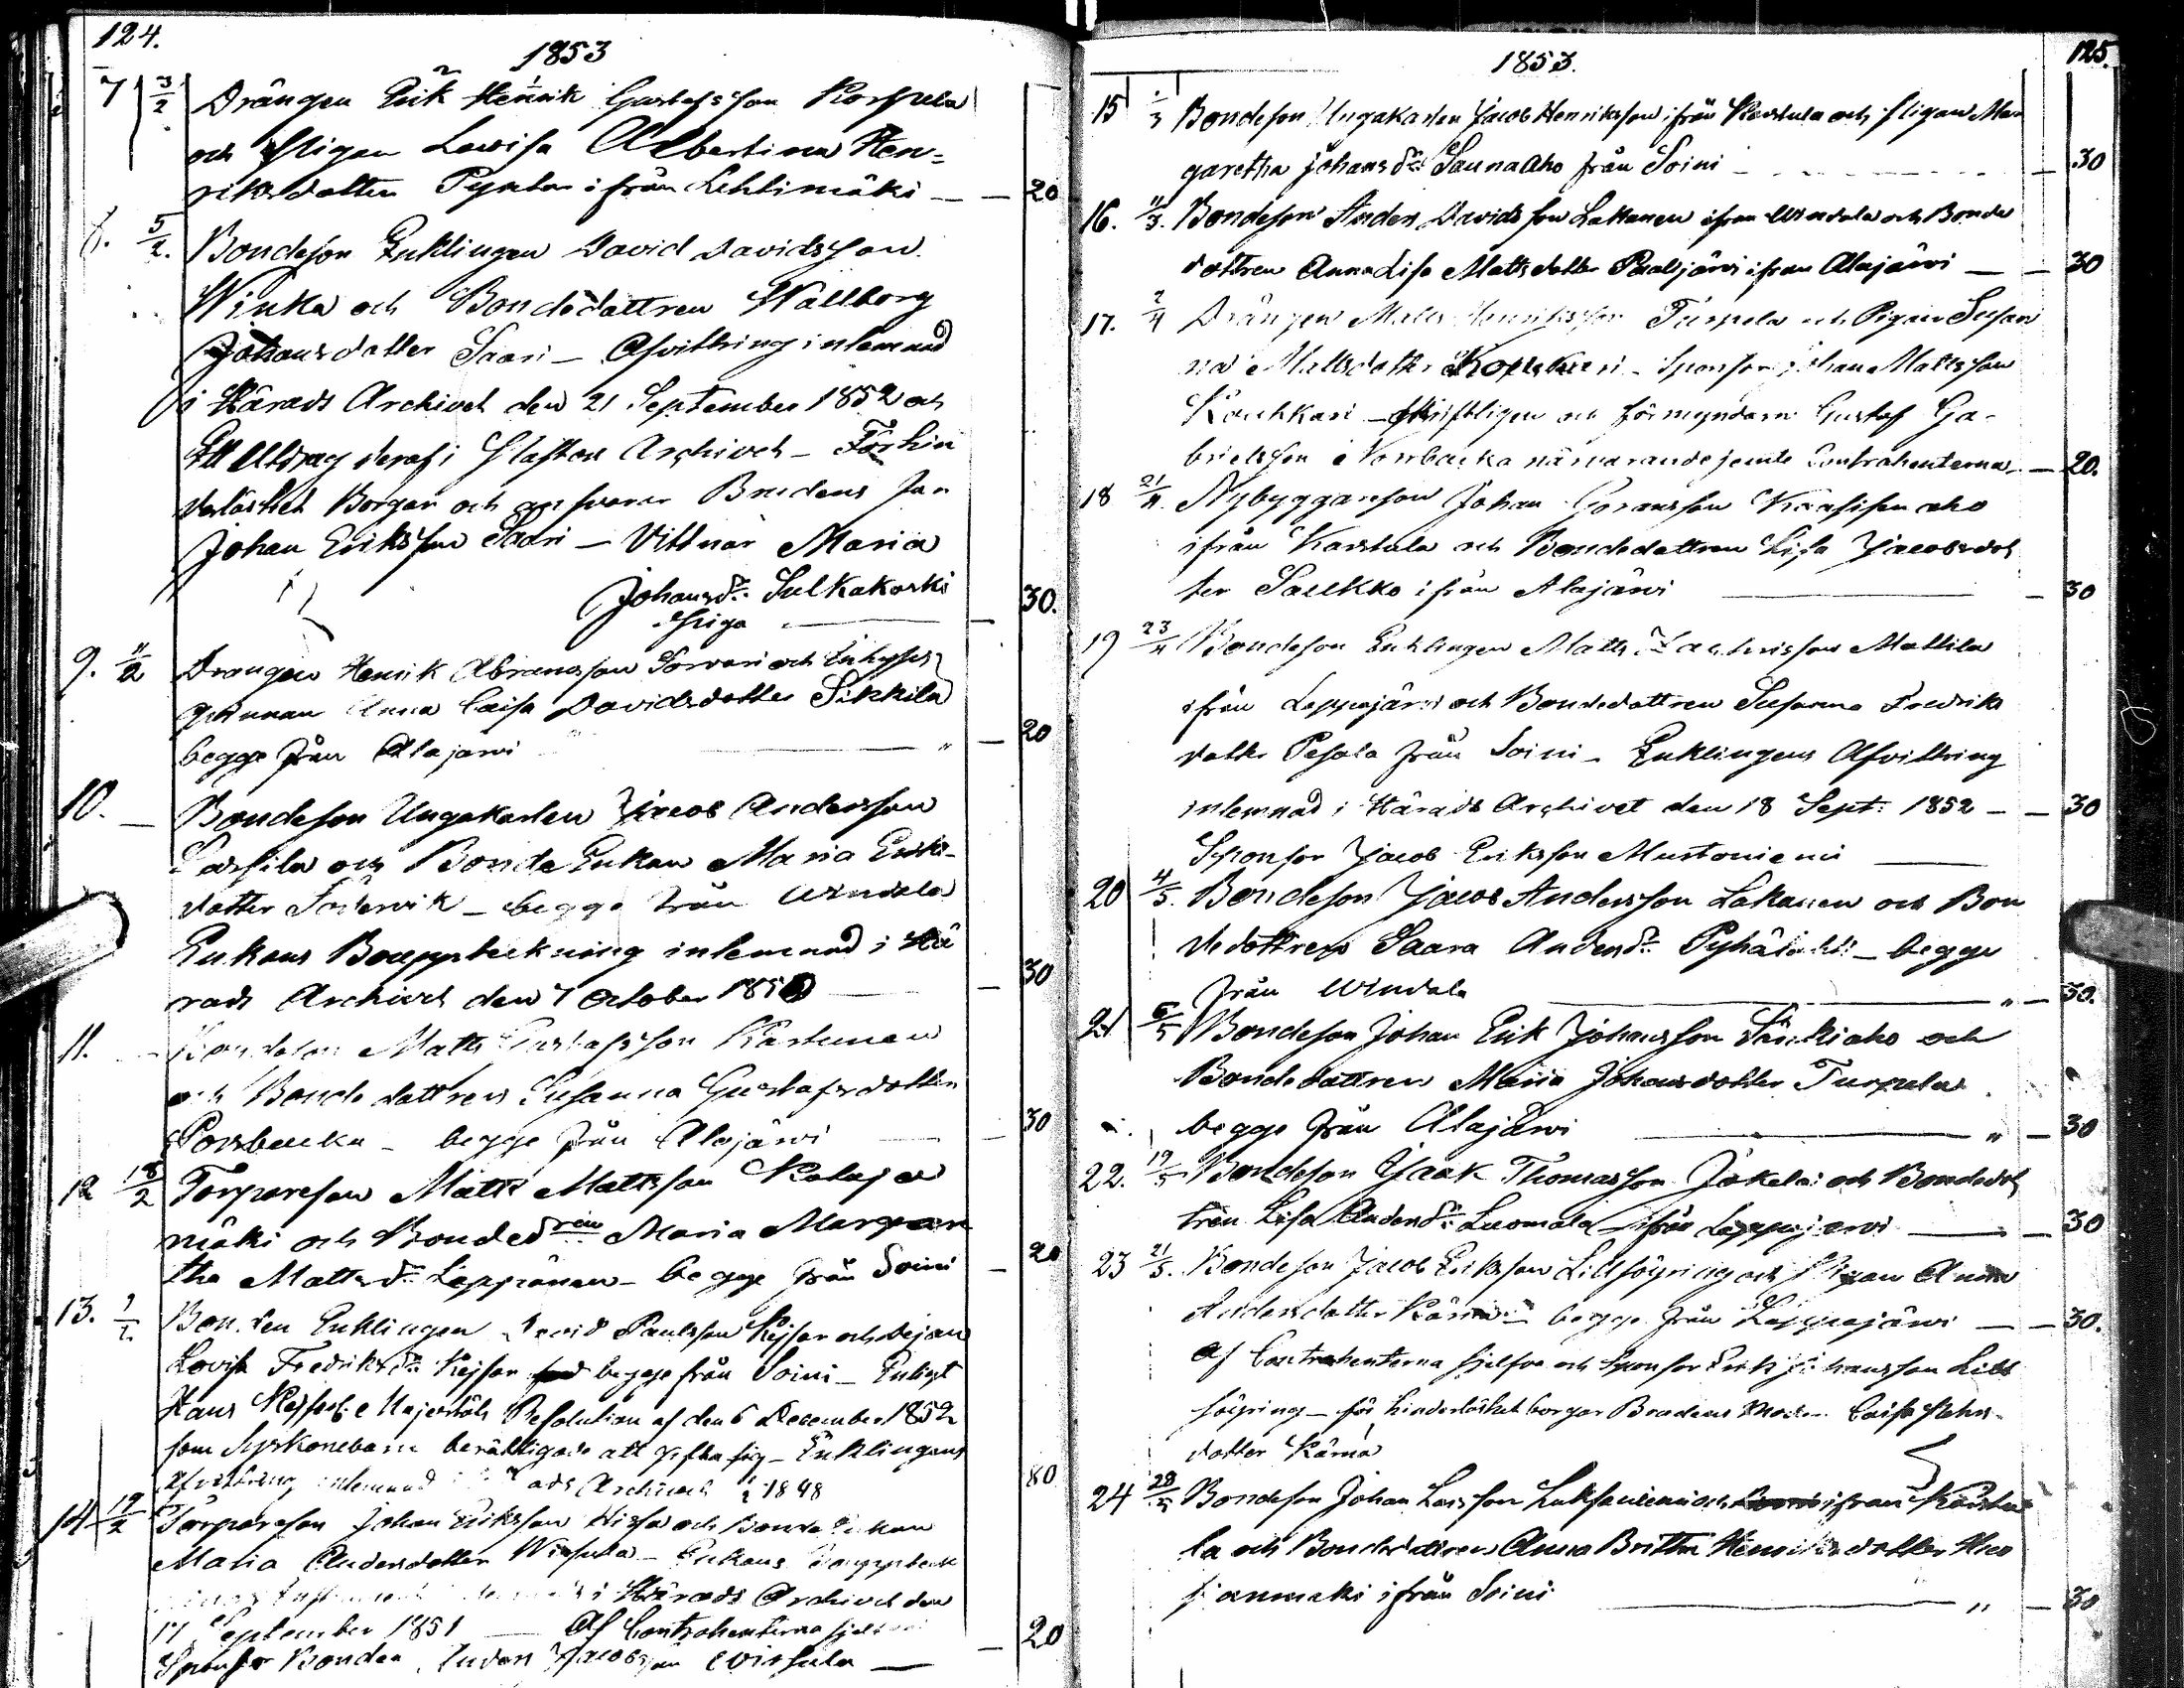 124.
1853
7 3/2 Drängen Erik Henrik Gustafsson Korpela
och Pigan Lovisa Albertina Hen=
riksdotter Pynttari ifrån Lehtimäki — — 20
8. 5/2. Bondeson Enklingen David Davidsson
Vinka och Bondedottren Wallborg
Johansdotter Saari — Afvittring inlemnad
i Härads Archivet den 21 September 1852 och
Ett Utdrag deraf i Pastors Archivet — För hin
derlöshet Borgar och ansvarar Brudens Far
Johan Eriksson Saari — Vittnar Maria
Johansdr Sulkakoski
Piga — — 30.
9. 11/2 Drängen Henrik Abramsson Sorvari och Inhyses
qvinnan Anna Caisa Davidsdotter Sikkila
begge från Alajärvi — " — 20
10. — Bondeson Ungakarlen Jacob Andersson
och Bonde Enkan Maria Eriks-
dotter — begge från Windala
Enkans Bouppteckning inlemnad i Hä
rads Archivet den 7 October 185 — — 30
11. — Bondeson Matts Gustafsson
och Bonde dottren Susanna Gustafsdotter
Porrbacka — begge från Alajärvi — — 30
12 18/2 Torpareson Matts Mattsson
mäki och Bondedren Maria Margare
tha Mattsdr Leppänen — begge från Soini — 20
13. Bonden Enklingen David Paulsson Kejsar och Pigan
Lovisa Fredriksdr Kejsar begge från Soini — Enligt
Hans Kejserlige Majestäts Resolution af den 6 December 1852
som Syskonebarn berättigade att gifta sig — Enklingens
Afvittring inlemnad Härads Archivet 1848 80
14 19/2 Torpareson Johan Eriksson och Bonde Enkan
Maria Andersdotter Wirsula — Enkans Bouppteck
i Härads Archivet den
17 September 1851 — Af Contrahenterna sjelfva
Sponsor Bonden Anders Jacobsson Wirsula — — 20
1853. 125.
15 /3 Bondeson Ungakarlen Jacob Henriksson ifrån Karstula och Pigan Mar
garetha Johansdr Saunaaho från Soini — — 30
16. 11/3. Bondeson Anders Davidsson Lakanen ifrån Windala och Bonde
dottren Anna Lisa Matts dotter ifrån Alajärvi — — 30
17. 2/4 Drängen Matts Henriksson Turpela och Pigan Susan
na Mattsdotter — Sponsor Johan Mattsson
Koukkari — Skriftligen och förmyndaren Gustaf Ga-
brielsson Norrbacka närvarande jemte Contrahenterna — 20.
18 21/4. Nybyggareson Johan Göransson aho
ifrån Karstula och Bondedottren Lisa Jacobsdot
ter Saukko ifrån Alajärvi — — 30
19 23/4 Bondeson Enklingen Matts Zachrisson Mattila
ifrån Lappajärvi och Bondedottren Susanna Fredriks
dotter Pesola från Soini — Enklingens Afvittring
inlemnad i Härads Archivet den 18 Sept: 1852 — — 30
Sponsor Jacob Eriksson Mustoniemi —
20 4/5. Bondeson Jacob Andersson Lakanen och Bon
dedottren Saara Andersdr — begge
från Windala — " — 30.
21 6/5 Bondeson Johan Erik Johansson Sänkiaho och
Bonde dottren Maria Johansdotter Turpela
begge från Alajärvi — " — 30
22. 19/5 Bondeson Isaak Thomasson Jokela och Bondedot
tren Lisa Andersdr Luomala ifrån Lappajärvi — — 30
23 21/5. Bondeson Jacob Eriksson Lillsöyring och Pigan Anna
Andersdotter Kärnä — begge från Lappajärvi — — 30.
Af Contrahenterna sjelfva och Sponsor Erik Johansson Lill
söyring — för hinderlöshet borgar Brudens Moder Caisa
dotter Kärnä
24 28/5 Bondeson Johan Larsson ifrån Karstu
la och Bondedottren Anna Britta Henriksdotter
ifrån Soini — " — 30